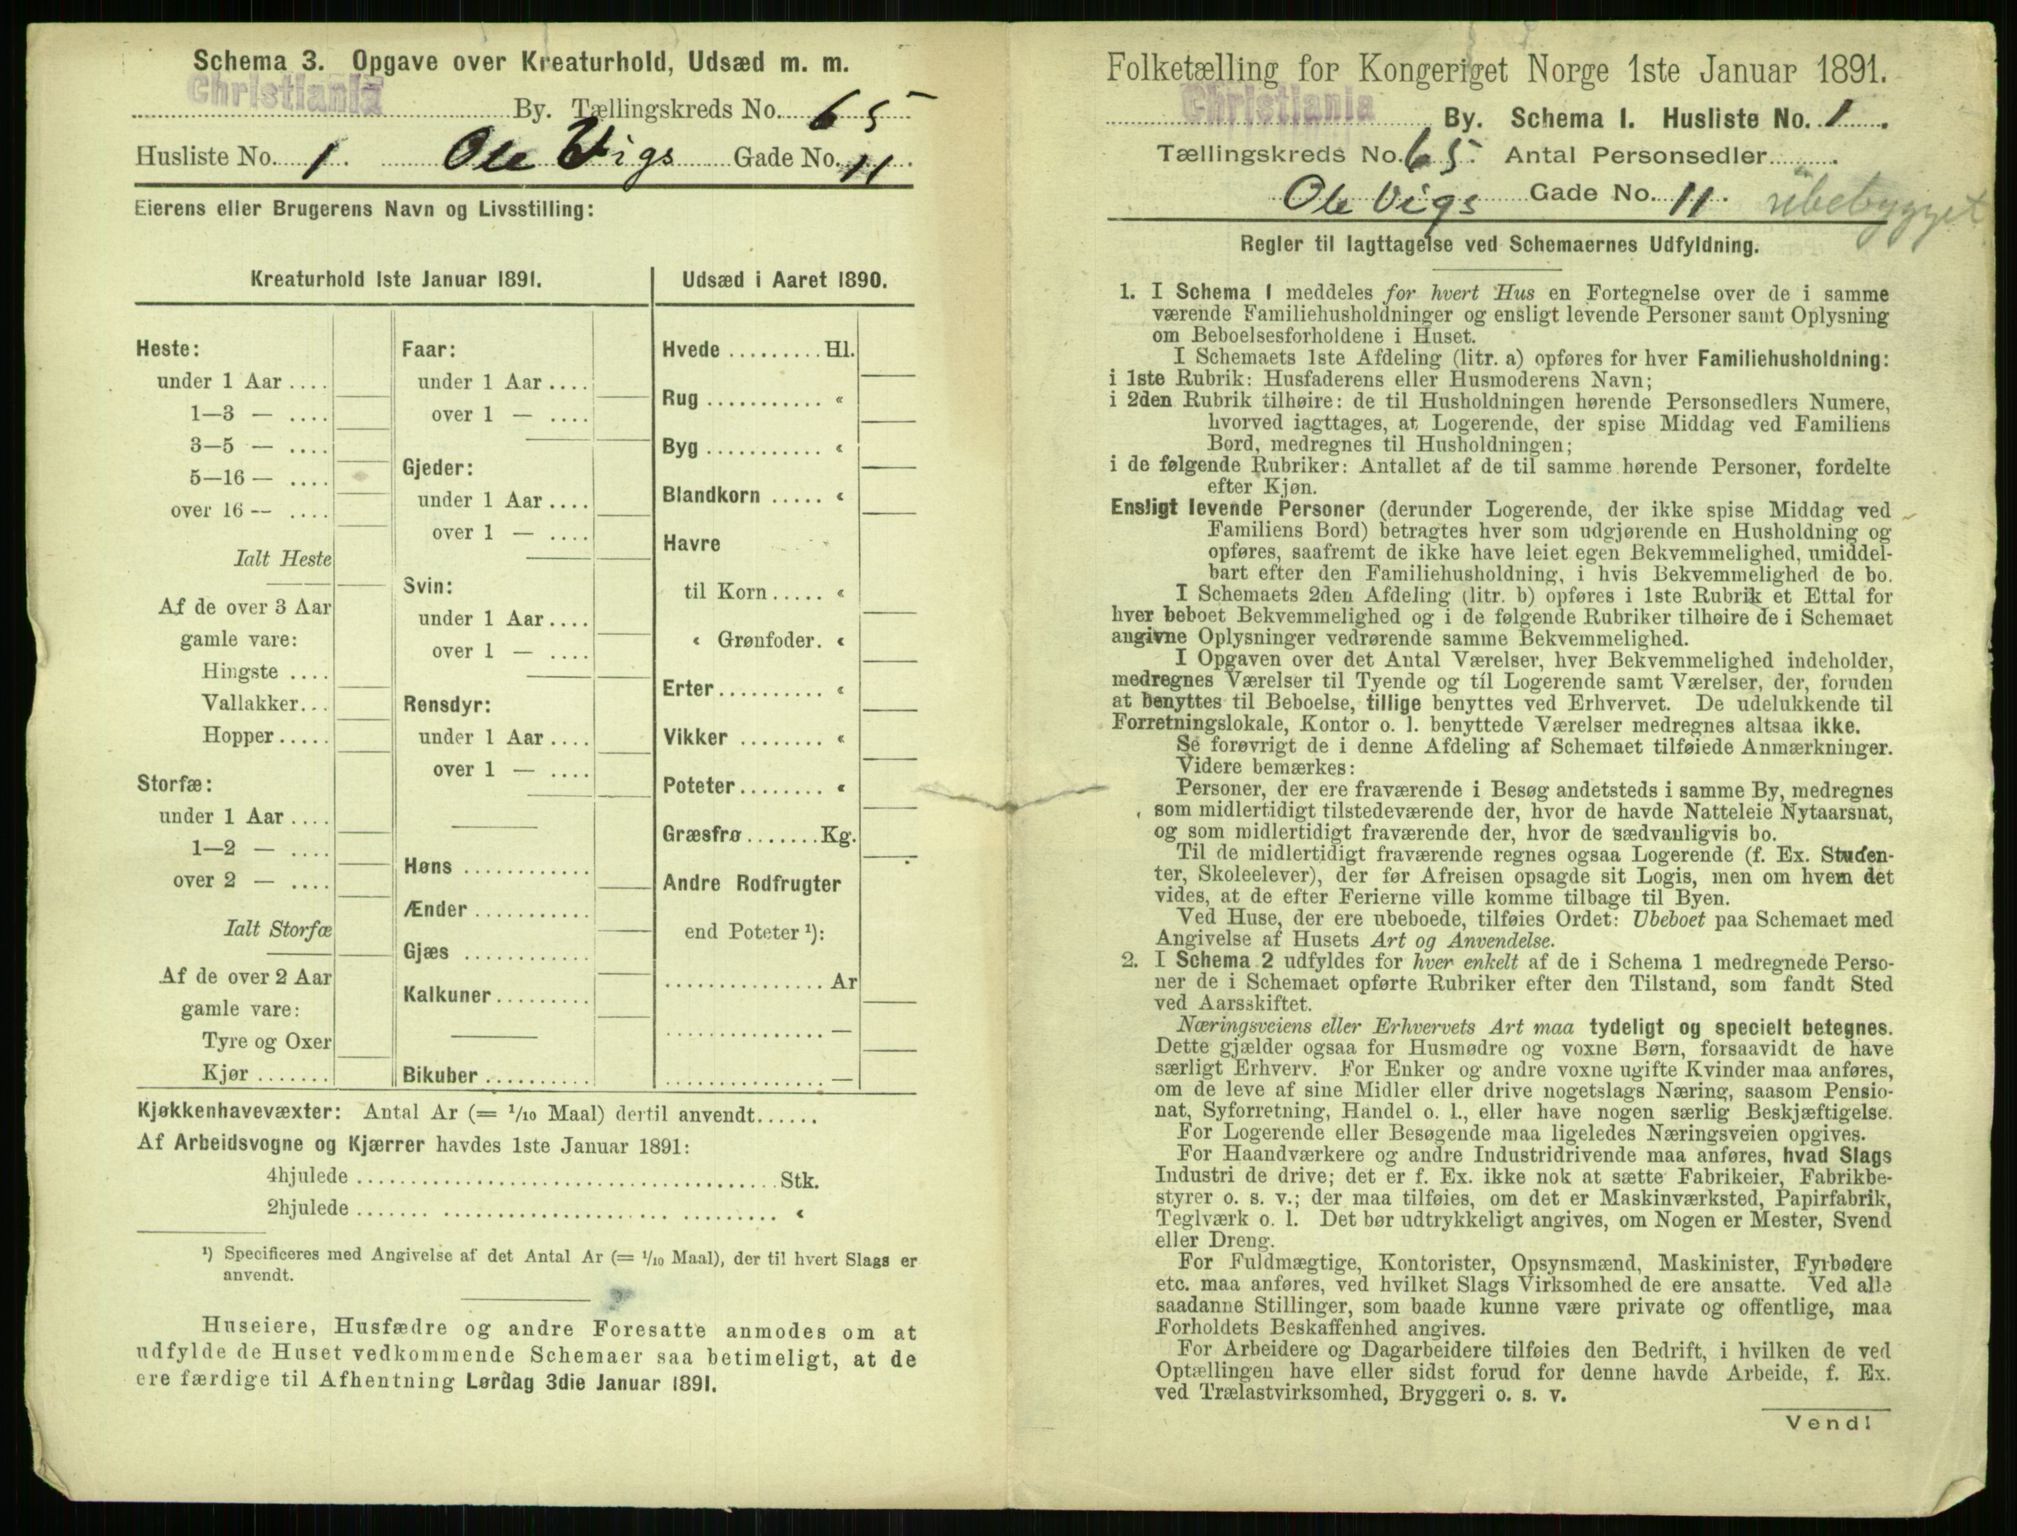 Schema 3. Opgave over Kreaturhold, Udsæd m. m.
Christiania By. Tællingskreds No. 65
Husliste No. 1. Ole Vigs Gade No. 11
Eierens eller Brugerens Navn og Livsstilling:
Kreaturhold 1ste Januar 1891.
Heste:
under 1 Aar ....
1—3 — ....
3—5 — ....
5—16 — ....
over 16 — ....
Ialt Heste
Af de over 3 Aar
gamle vare:
Hingste ....
Vallakker...
Hopper.....
Storfæ:
under 1 Aar ....
1—2 — ....
over 2 — ....
Ialt Storfæ
Af de over 2 Aar
gamle vare:
Tyre og Oxer
Kjør .......
Faar:
under 1 Aar ....
over 1 — ....
Gjeder:
under 1 Aar ....
over 1 — ....
Svin:
under 1 Aar ....
over 1 — ....
Rensdyr:
under 1 Aar ....
over 1 — ....
Høns ............
Ænder ...........
Gjæs ............
Kalkuner.........
Bikuber ..........
Udsæd i Aaret 1890.
Hvede ......... Hl.
Rug ........... «
Byg ........... «
Blandkorn ..... «
Havre
til Korn ..... «
« Grønfoder. «
Erter.......... «
Vikker ........ «
Poteter........ «
Græsfrø ....... Kg.
Andre Rodfrugter
end Poteter ¹):
............... Ar
............... —
............... —
Kjøkkenhavevæxter: Antal Ar (= 1/10 Maal) dertil anvendt......
Af Arbeidsvogne og Kjærrer havdes 1ste Januar 1891:
4hjulede ........................................ Stk.
2hjulede ........................................ «
¹) Specificeres med Angivelse af det Antal Ar (= 1/10 Maal), der til hvert Slags er
anvendt.
Huseiere, Husfædre og andre Foresatte anmodes om at
udfylde de Huset vedkommende Schemaer saa betimeligt, at de
ere færdige til Afhentning Lørdag 3die Januar 1891.
Folketælling for Kongeriget Norge 1ste Januar 1891.
Christiania By. Schema I. Husliste No. 1.
Tællingskreds No. 65. Antal Personsedler .........
Ole Vigs Gade No. 11. ubebygget
Regler til Iagttagelse ved Schemaernes Udfyldning.
1. I Schema I meddeles for hvert Hus en Fortegnelse over de i samme
værende Familiehusholdninger og ensligt levende Personer samt Oplysning
om Beboelsesforholdene i Huset.
I Schemaets 1ste Afdeling (litr. a) opføres for hver Familiehusholdning:
i 1ste Rubrik: Husfaderens eller Husmoderens Navn;
i 2den Rubrik tilhøire: de til Husholdningen hørende Personsedlers Numere,
hvorved iagttages, at Logerende, der spise Middag ved Familiens
Bord, medregnes til Husholdningen;
i de følgende Rubriker: Antallet af de til samme hørende Personer, fordelte
efter Kjøn.
Ensligt levende Personer (derunder Logerende, der ikke spise Middag ved
Familiens Bord) betragtes hver som udgjørende en Husholdning og
opføres, saafremt de ikke have leiet egen Bekvemmelighed, umiddel-
bart efter den Familiehusholdning, i hvis Bekvemmelighed de bo.
I Schemaets 2den Afdeling (litr. b) opføres i 1ste Rubrik et Ettal for
hver beboet Bekvemmelighed og i de følgende Rubriker tilhøire de i Schemaet
angivne Oplysninger vedrørende samme Bekvemmelighed.
I Opgaven over det Antal Værelser, hver Bekvemmelighed indeholder,
medregnes Værelser til Tyende og til Logerende samt Værelser, der, foruden
at benyttes til Beboelse, tillige benyttes ved Erhvervet. De udelukkende til
Forretningslokale, Kontor o. l. benyttede Værelser medregnes altsaa ikke.
Se forøvrigt de i denne Afdeling af Schemaet tilføiede Anmærkninger.
Videre bemærkes:
Personer, der ere fraværende i Besøg andetsteds i samme By, medregnes
som midlertidigt tilstedeværende der, hvor de havde Natteleie Nytaarsnat,
og som midlertidigt fraværende der, hvor de sædvanligvis bo.
Til de midlertidigt fraværende regnes ogsaa Logerende (f. Ex. Studen-
ter, Skoleelever), der før Afreisen opsagde sit Logis, men om hvem det
vides, at de efter Ferierne ville komme tilbage til Byen.
Ved Huse, der ere ubeboede, tilføies Ordet: Ubeboet paa Schemaet med
Angivelse af Husets Art og Anvendelse.
2. I Schema 2 udfyldes for hver enkelt af de i Schema 1 medregnede Perso-
ner de i Schemaet opførte Rubriker efter den Tilstand, som fandt Sted
ved Aarsskiftet.
Næringsveiens eller Erhvervets Art maa tydeligt og specielt betegnes.
Dette gjælder ogsaa for Husmødre og voxne Børn, forsaavidt de have
særligt Erhverv. For Enker og andre voxne ugifte Kvinder maa anføres,
om de leve af sine Midler eller drive nogetslags Næring, saasom Pensio-
nat, Syforretning, Handel o. l., eller have nogen særlig Beskjæftigelse.
For Logerende eller Besøgende maa ligeledes Næringsveien opgives.
For Haandværkere og andre Industridrivende maa anføres, hvad Slags
Industri de drive; det er f. Ex. ikke nok at sætte Fabrikeier, Fabrikbe-
styrer o. s. v.; der maa tilføies, om det er Maskinværksted, Papirfabrik,
Teglværk o. l. Det bør udtrykkeligt angives, om Nogen er Mester, Svend
eller Dreng.
For Fuldmægtige, Kontorister, Opsynsmænd, Maskinister, Fyrbødere
etc. maa anføres, ved hvilket Slags Virksomhed de ere ansatte. Ved alle
saadanne Stillinger, som baade kunne være private og offentlige, maa
Forholdets Beskaffenhed angives.
For Arbeidere og Dagarbeidere tilføies den Bedrift, i hvilken de ved
Optællingen have eller sidst forud for denne havde Arbeide, f. Ex.
ved Trælastvirksomhed, Bryggeri o. s. v.
Vend!